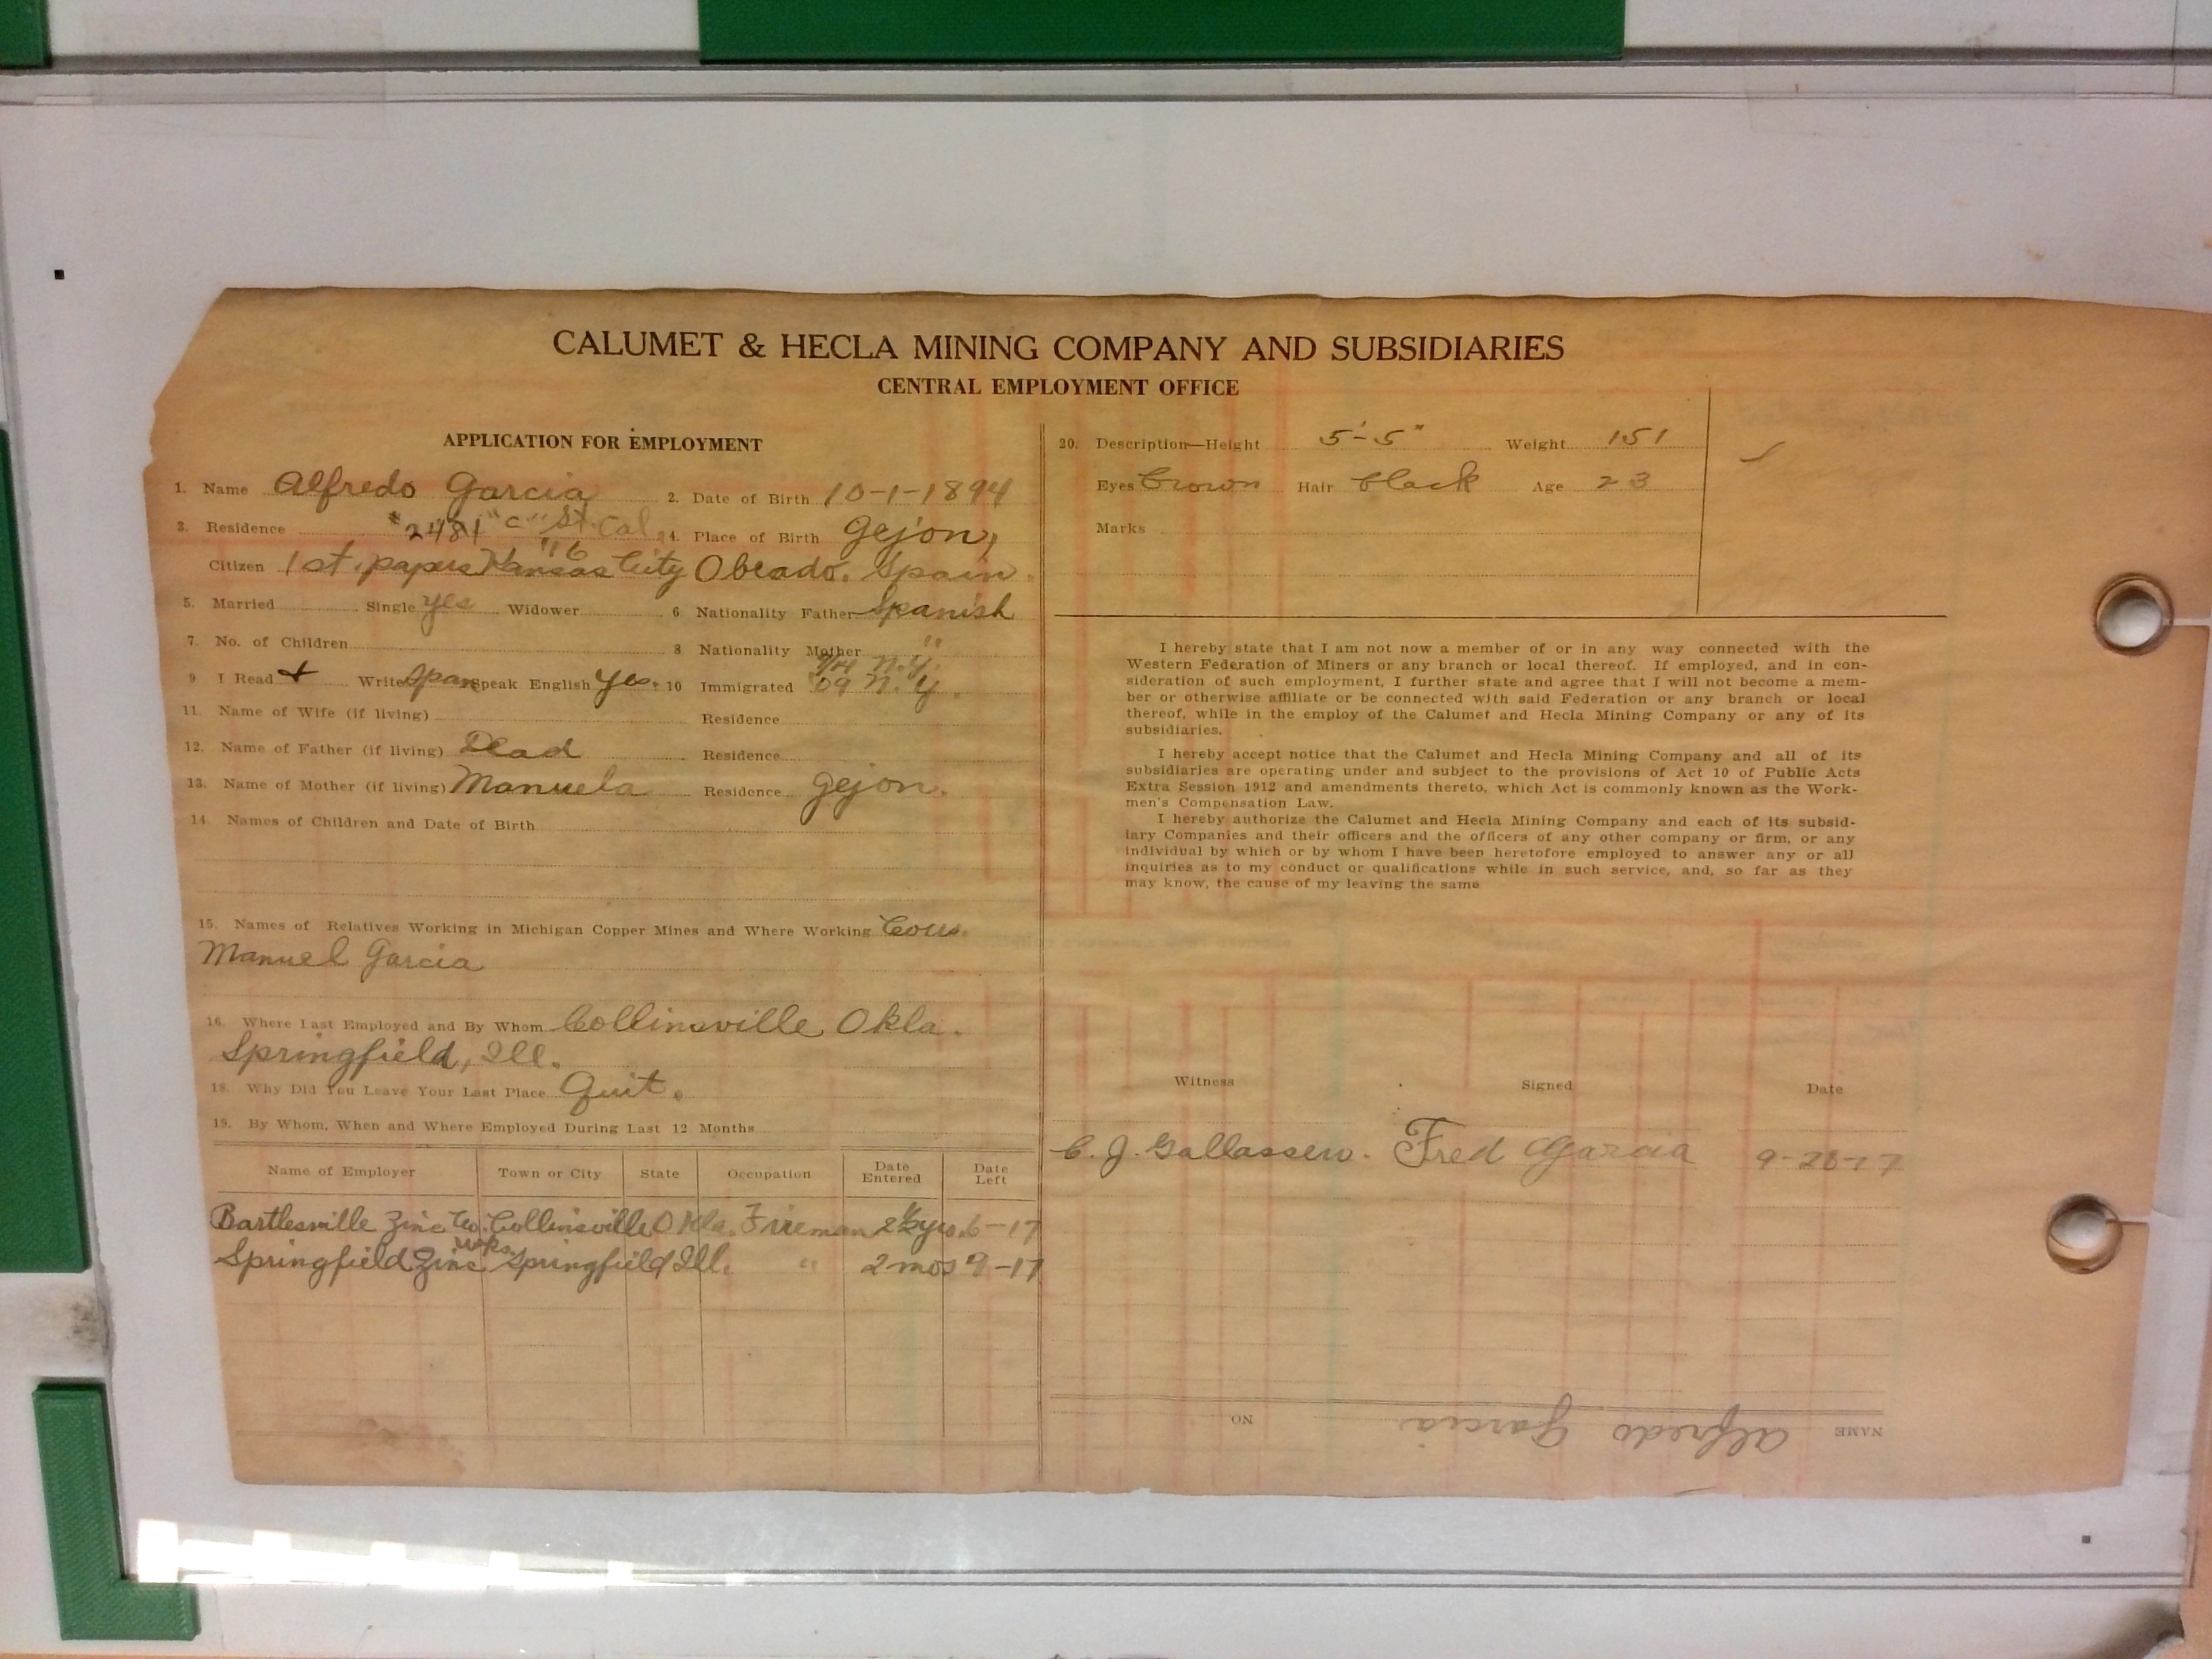 CALUMET & HECLA MINING COMPANY AND SUBSIDIARIES
CENTRAL EMPLOYMENT OFFICE
APPLICATION FOR EMPLOYMENT
1. Name Alfredo Garcia 2. Date of Birth 10-1-1894
3. Residence #2481 "C" St. Cal. 4. Place of Birth Gejon,
'16
Citizen 1st. papers Kansas City Obeado. Spain.
5. Married Single yes Widower 6 Nationality Father Spanish
7. No. of Children 8 Nationality Mother "
'14 N.Y.
9 I Read + Write Span Speak English yes. 10 Immigrated '09 N.Y.
11. Name of Wife (if living) Residence
12. Name of Father (if living) Dead Residence
13. Name of Mother (if living) Manuela Residence Gejon.
14. Names of Children and Date of Birth
15. Names of Relatives Working in Michigan Copper Mines and Where Working Cous.
Manuel Garcia
16. Where Last Employed and By Whom Collinsville Okla.
Springfield, Ill.
18. Why Did You Leave Your Last Place Quit.
19. By Whom, When and Where Employed During Last 12 Months
Name of Employer Town or City State Occupation Date Entered Date Left
Bartlesville Zinc Co. Collinsville Okla. Fireman 2½ yrs. 6-17
Springfield Zinc Wks. Springfield Ill. " 2 mos 9-17
20. Description—Height 5'-5" Weight 151
Eyes brown Hair black Age 23
Marks
I hereby state that I am not now a member of or in any way connected with the
Western Federation of Miners or any branch or local thereof. If employed, and in con-
sideration of such employment, I further state and agree that I will not become a mem-
ber or otherwise affiliate or be connected with said Federation or any branch or local
thereof, while in the employ of the Calumet and Hecla Mining Company or any of its
subsidiaries.
I hereby accept notice that the Calumet and Hecla Mining Company and all of its
subsidiaries are operating under and subject to the provisions of Act 10 of Public Acts
Extra Session 1912 and amendments thereto, which Act is commonly known as the Work-
men's Compensation Law.
I hereby authorize the Calumet and Hecla Mining Company and each of its subsid-
iary Companies and their officers and the officers of any other company or firm, or any
individual by which or by whom I have been heretofore employed to answer any or all
inquiries as to my conduct or qualifications while in such service, and, so far as they
may know, the cause of my leaving the same
Witness Signed Date
C. J. Gallassero. Fred Garcia 9-28-17
NAME Alfredo Garcia NO